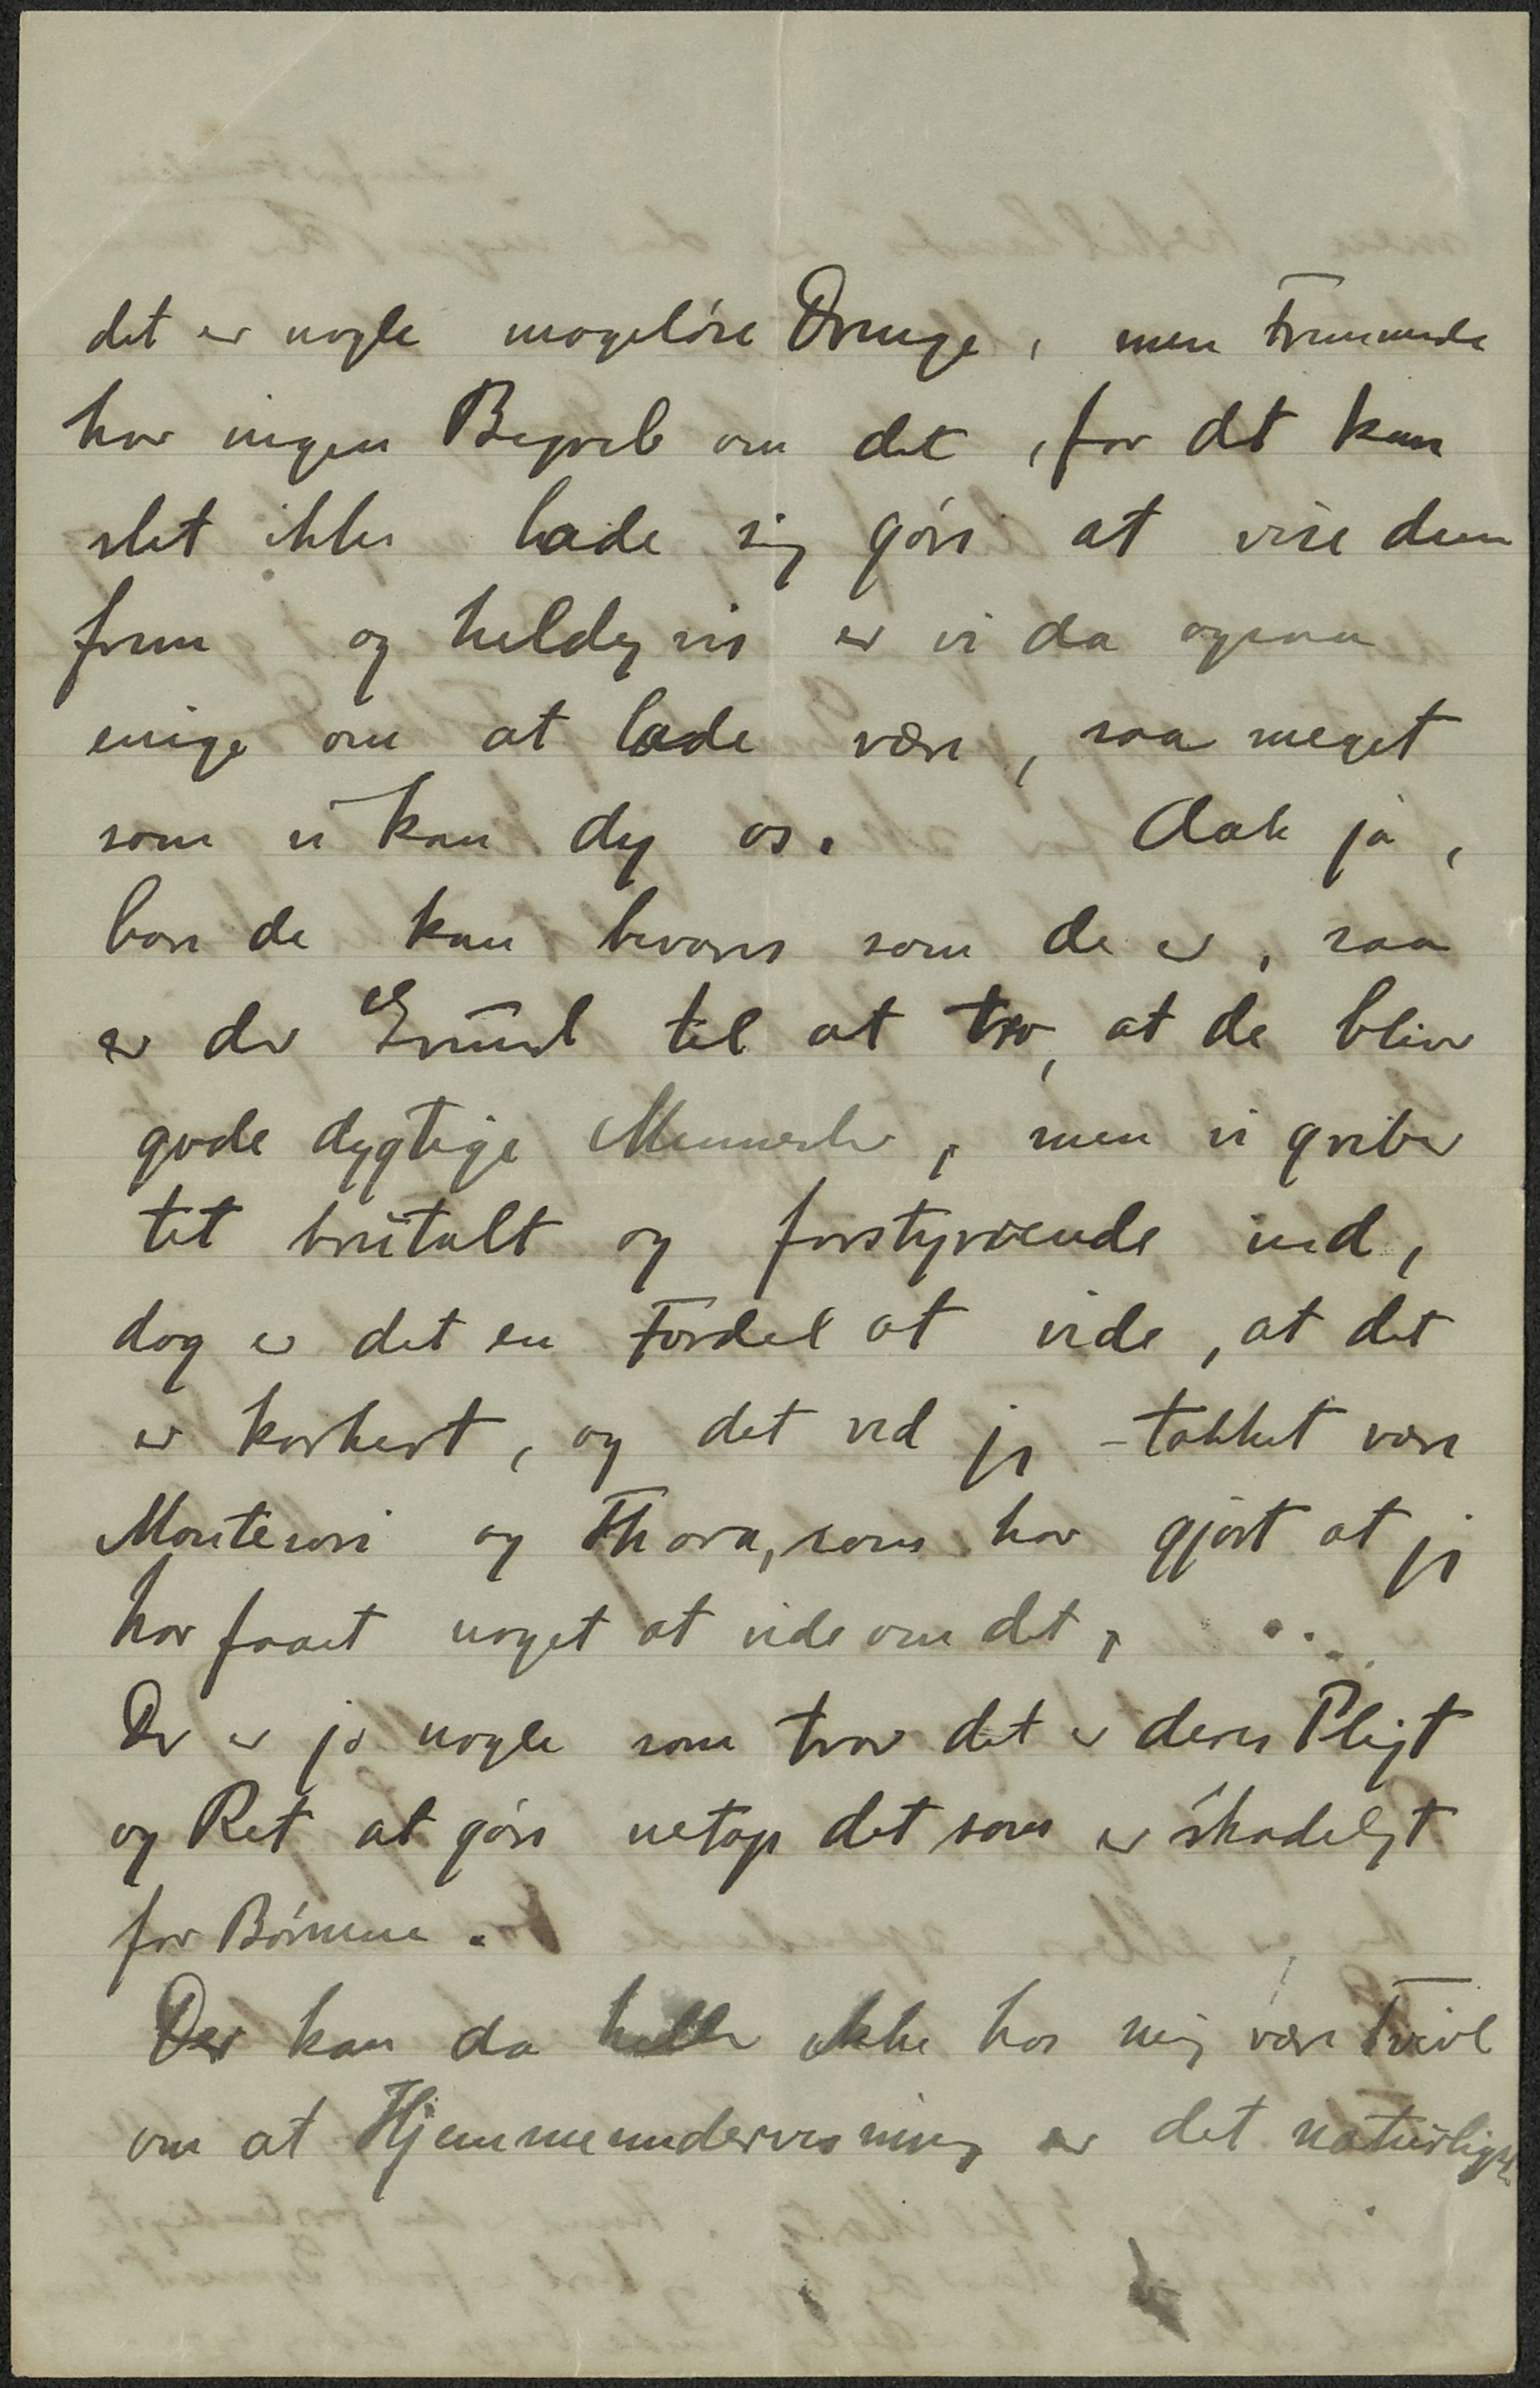 det er nogle mageløse Drenge, men Fremmede
har ingen Begreb om det, for det kan
slet ikke lade sig gøre at vise dem
frem og heldigvis er vi da ogsaa
enige om at lade være, saa meget
som vi kan dy os. Aak ja,
bare de kan bevares som de er, saa
er der Grund til at tro, at de bliver
gode dygtige Mennesker, men vi griber
tit brutalt og forstyrrende ind,
dog er det en Fordel at vide, at det
er forkert, og det ved jeg - takket være
Montesori og Thora, som har gjort at jeg
har faaet noget at vide om det,
Der er jo nogle som tror det er deres Pligt
og Ret at gøre netop det som er skadeligt
for Børnene.
Der kan da heller ikke hos mig være Tvivl
om at Hjemmeundervisning er det naturligste